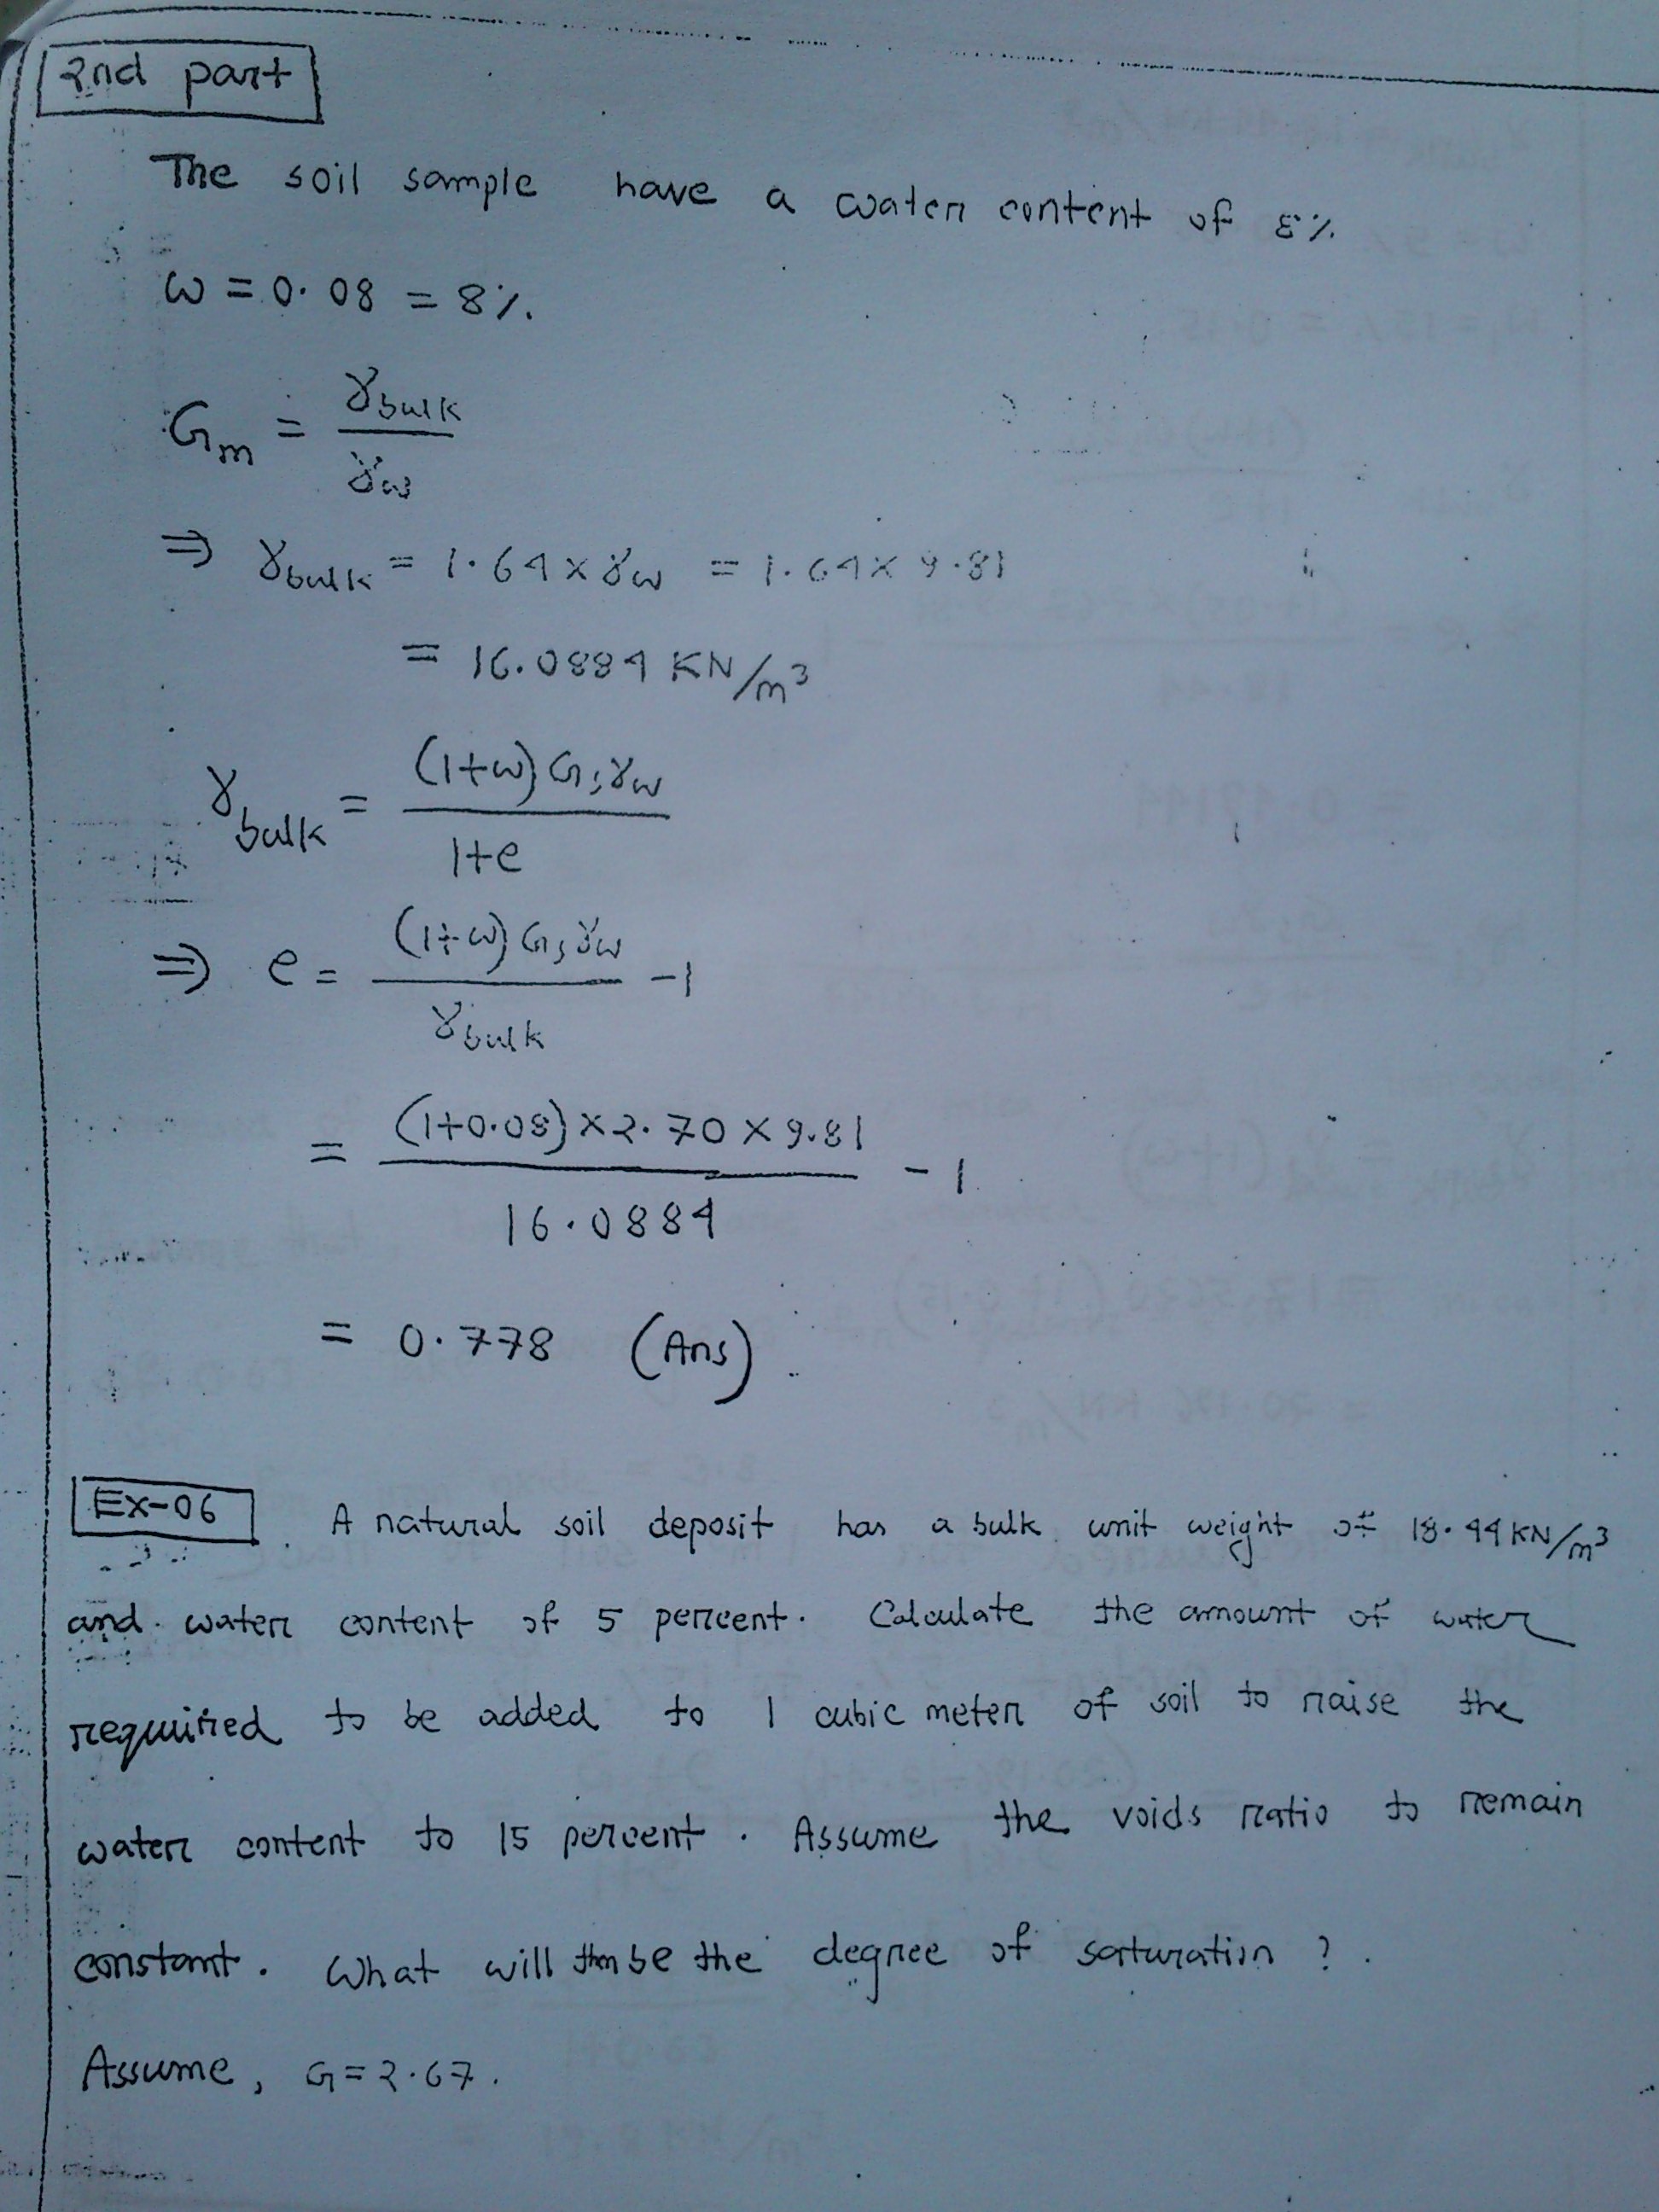 2nd part
The soil sample have a water content of 8%
ω = 0.08 = 8%.
Gm = γbulk / γω
⇒ γbulk = 1.64 × γω = 1.64 × 9.81
= 16.0884 KN/m³
γbulk = (1+ω) Gs γω / 1+e
⇒ e = (1+ω) Gs γω / γbulk - 1
= (1+0.08) × 2.70 × 9.81 / 16.0884 - 1
= 0.778 (Ans).
Ex-06 . A natural soil deposit has a bulk unit weight of 18.44 KN/m³
and water content of 5 percent. Calculate the amount of water
required to be added to 1 cubic meter of soil to raise the
water content to 15 percent. Assume the voids ratio to remain
constant. What will then be the degree of saturation ?.
Assume, G = 2.67.